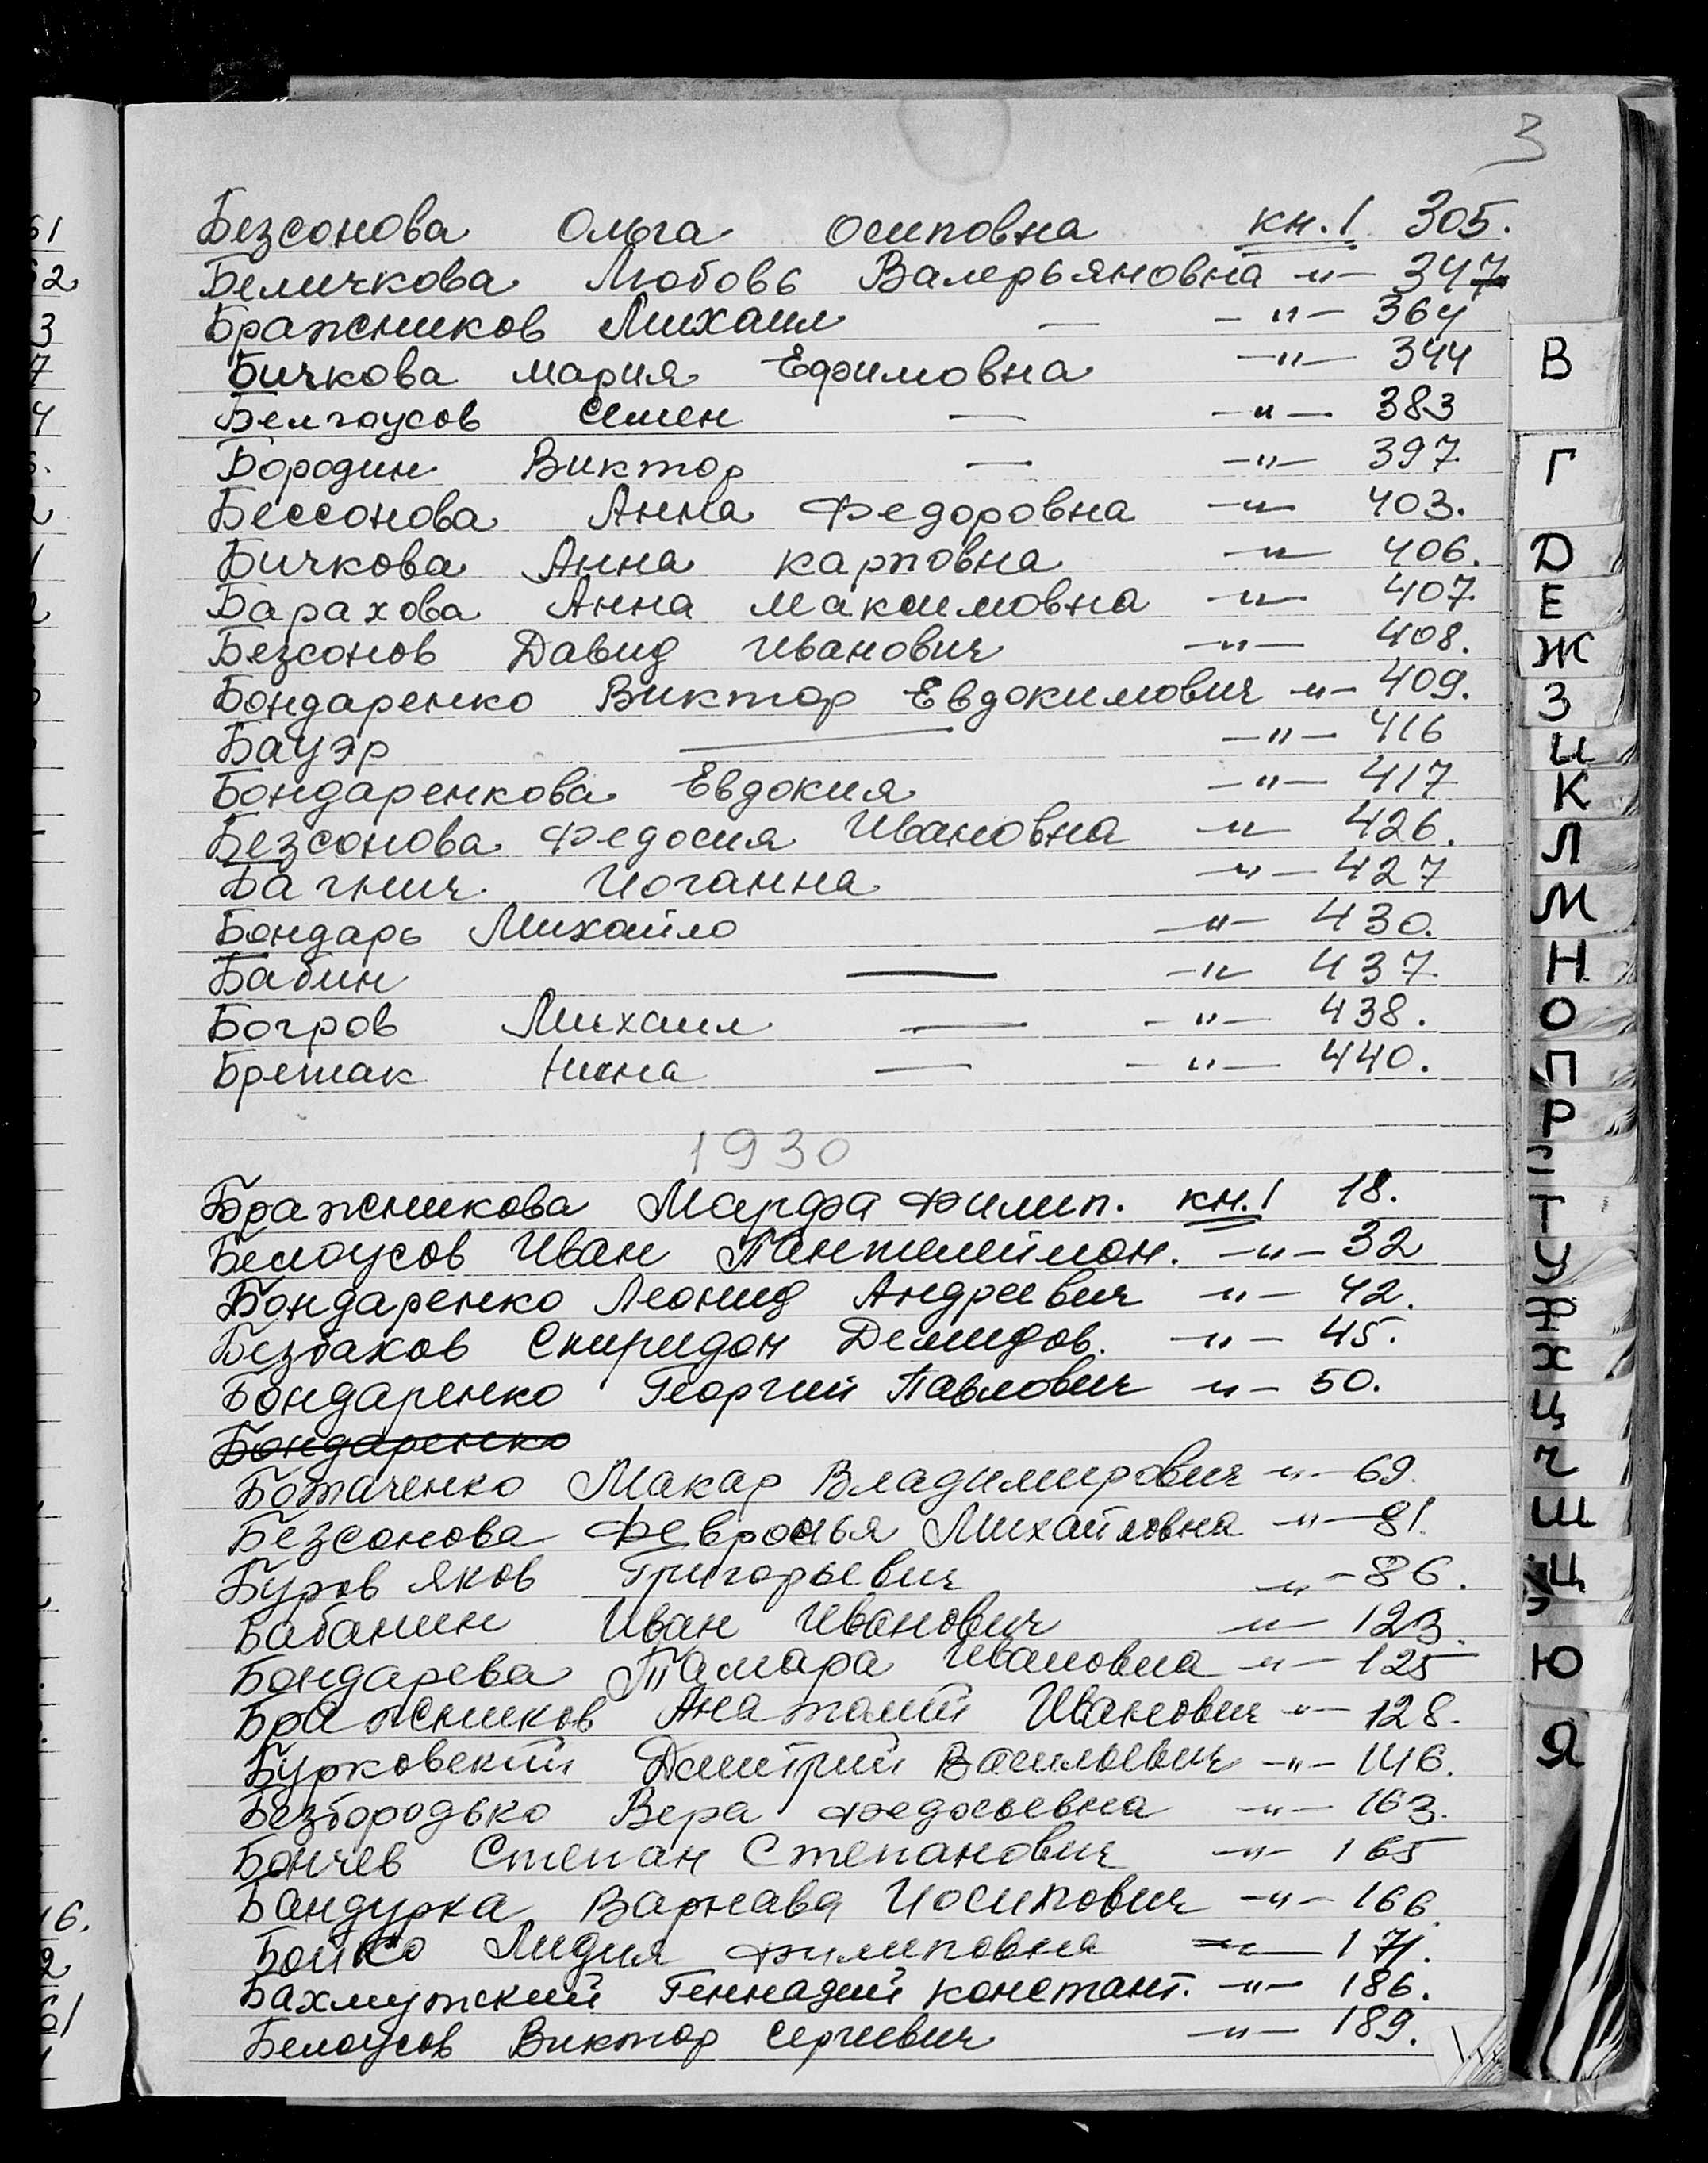 3
Безсонова Ольга Осиповна кн.1 305.
Беличкова Любовь Валерьяновна -"- 347
Бражников Михаил — -"- 364
Бичкова Мария Ефимовна -"- 344
Белгоусов Семен — -"- 383
Бородин Виктор — -"- 397.
Бессонова Анна Федоровна -"- 403.
Бичкова Анна Карповна -"- 406.
Барахова Анна Максимовна -"- 407.
Безсонов Давид Иванович -"- 408.
Бондаренко Виктор Евдокимович -"- 409.
Бауэр — -"- 416
Бондаренкова Евдокия -"- 417
Безсонова Федосия Ивановна -"- 426.
Багнич Иоганна -"- 427
Бондарь Михайло -"- 430.
Бабин — -"- 437
Богров Михаил — -"- 438.
Бретак Нина — -"- 440.
1930
Бражникова Марфа Филип. кн.1 18.
Белоусов Иван Пантилеймон. -"- 32
Бондаренко Леонид Андреевич -"- 42.
Безбаков Спиридон Демидов. -"- 45.
Бондаренко Георгий Павлович -"- 50.
Бондаренко
Ботаченко Макар Владимирович -"- 69.
Безсонова Февронья Михайловна -"- 81.
Буров Яков Григорьевич -"- 86.
Бабанин Иван Иванович -"- 123.
Бондарева Тамара Ивановна -"- 125
Бражников Анатолий Иванович -"- 128.
Бурковский Дмитрий Васильевич -"- 146.
Безбородько Вера Федосьевна -"- 163.
Бончев Степан Степанович -"- 165
Бандурка Варнава Иосипович -"- 166.
Бойко Лидия Филиповна -"- 171.
Бахмутский Геннадий Констант. -"- 186.
Белоусов Виктор Сергеевич -"- 189.
В
Г
Д
Е
Ж
З
И
К
Л
М
Н
О
П
Р
Т
У
Ф
Х
Ц
Ч
Ш
Щ
Э
Ю
Я